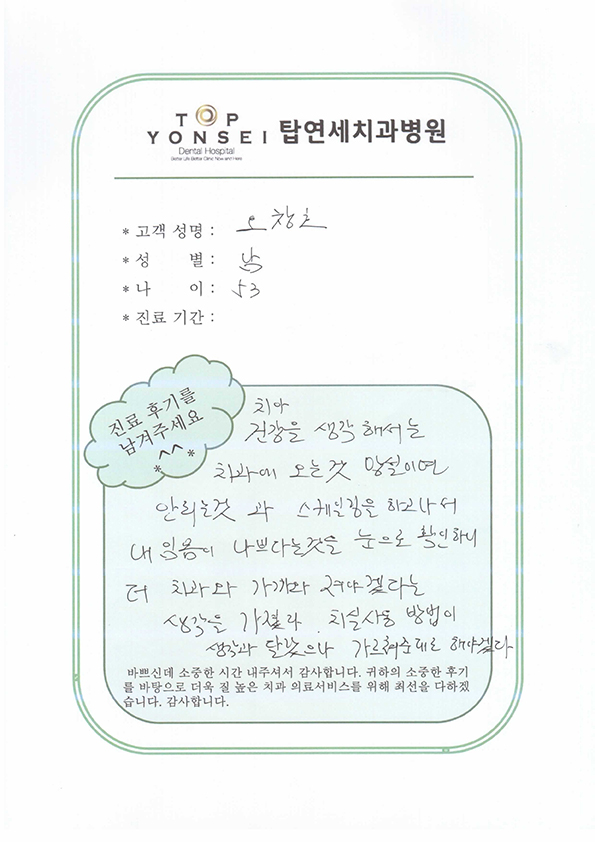 TOP
YONSEI 탑연세치과병원
Dental Hospital
Better Life Better Clinic Now and Here
* 고객 성명 : 오창
* 성 별 : 남
* 나 이 : 53
* 진료 기간 :
진료 후기를
남겨주세요
*^^*
치아
건강을 생각해서는
치과에 오는것 망설이면
안되는것 과 스케일링을 하고나서
내 잇몸이 나쁘다는것을 눈으로 확인하니
더 치과와 가까와 져야겠다는
생각을 가졌다. 치실사용 방법이
생각과 달랐으나 가르쳐준대로 해야겠다
바쁘신데 소중한 시간 내주셔서 감사합니다. 귀하의 소중한 후기
를 바탕으로 더욱 질 높은 치과 의료서비스를 위해 최선을 다하겠
습니다. 감사합니다.